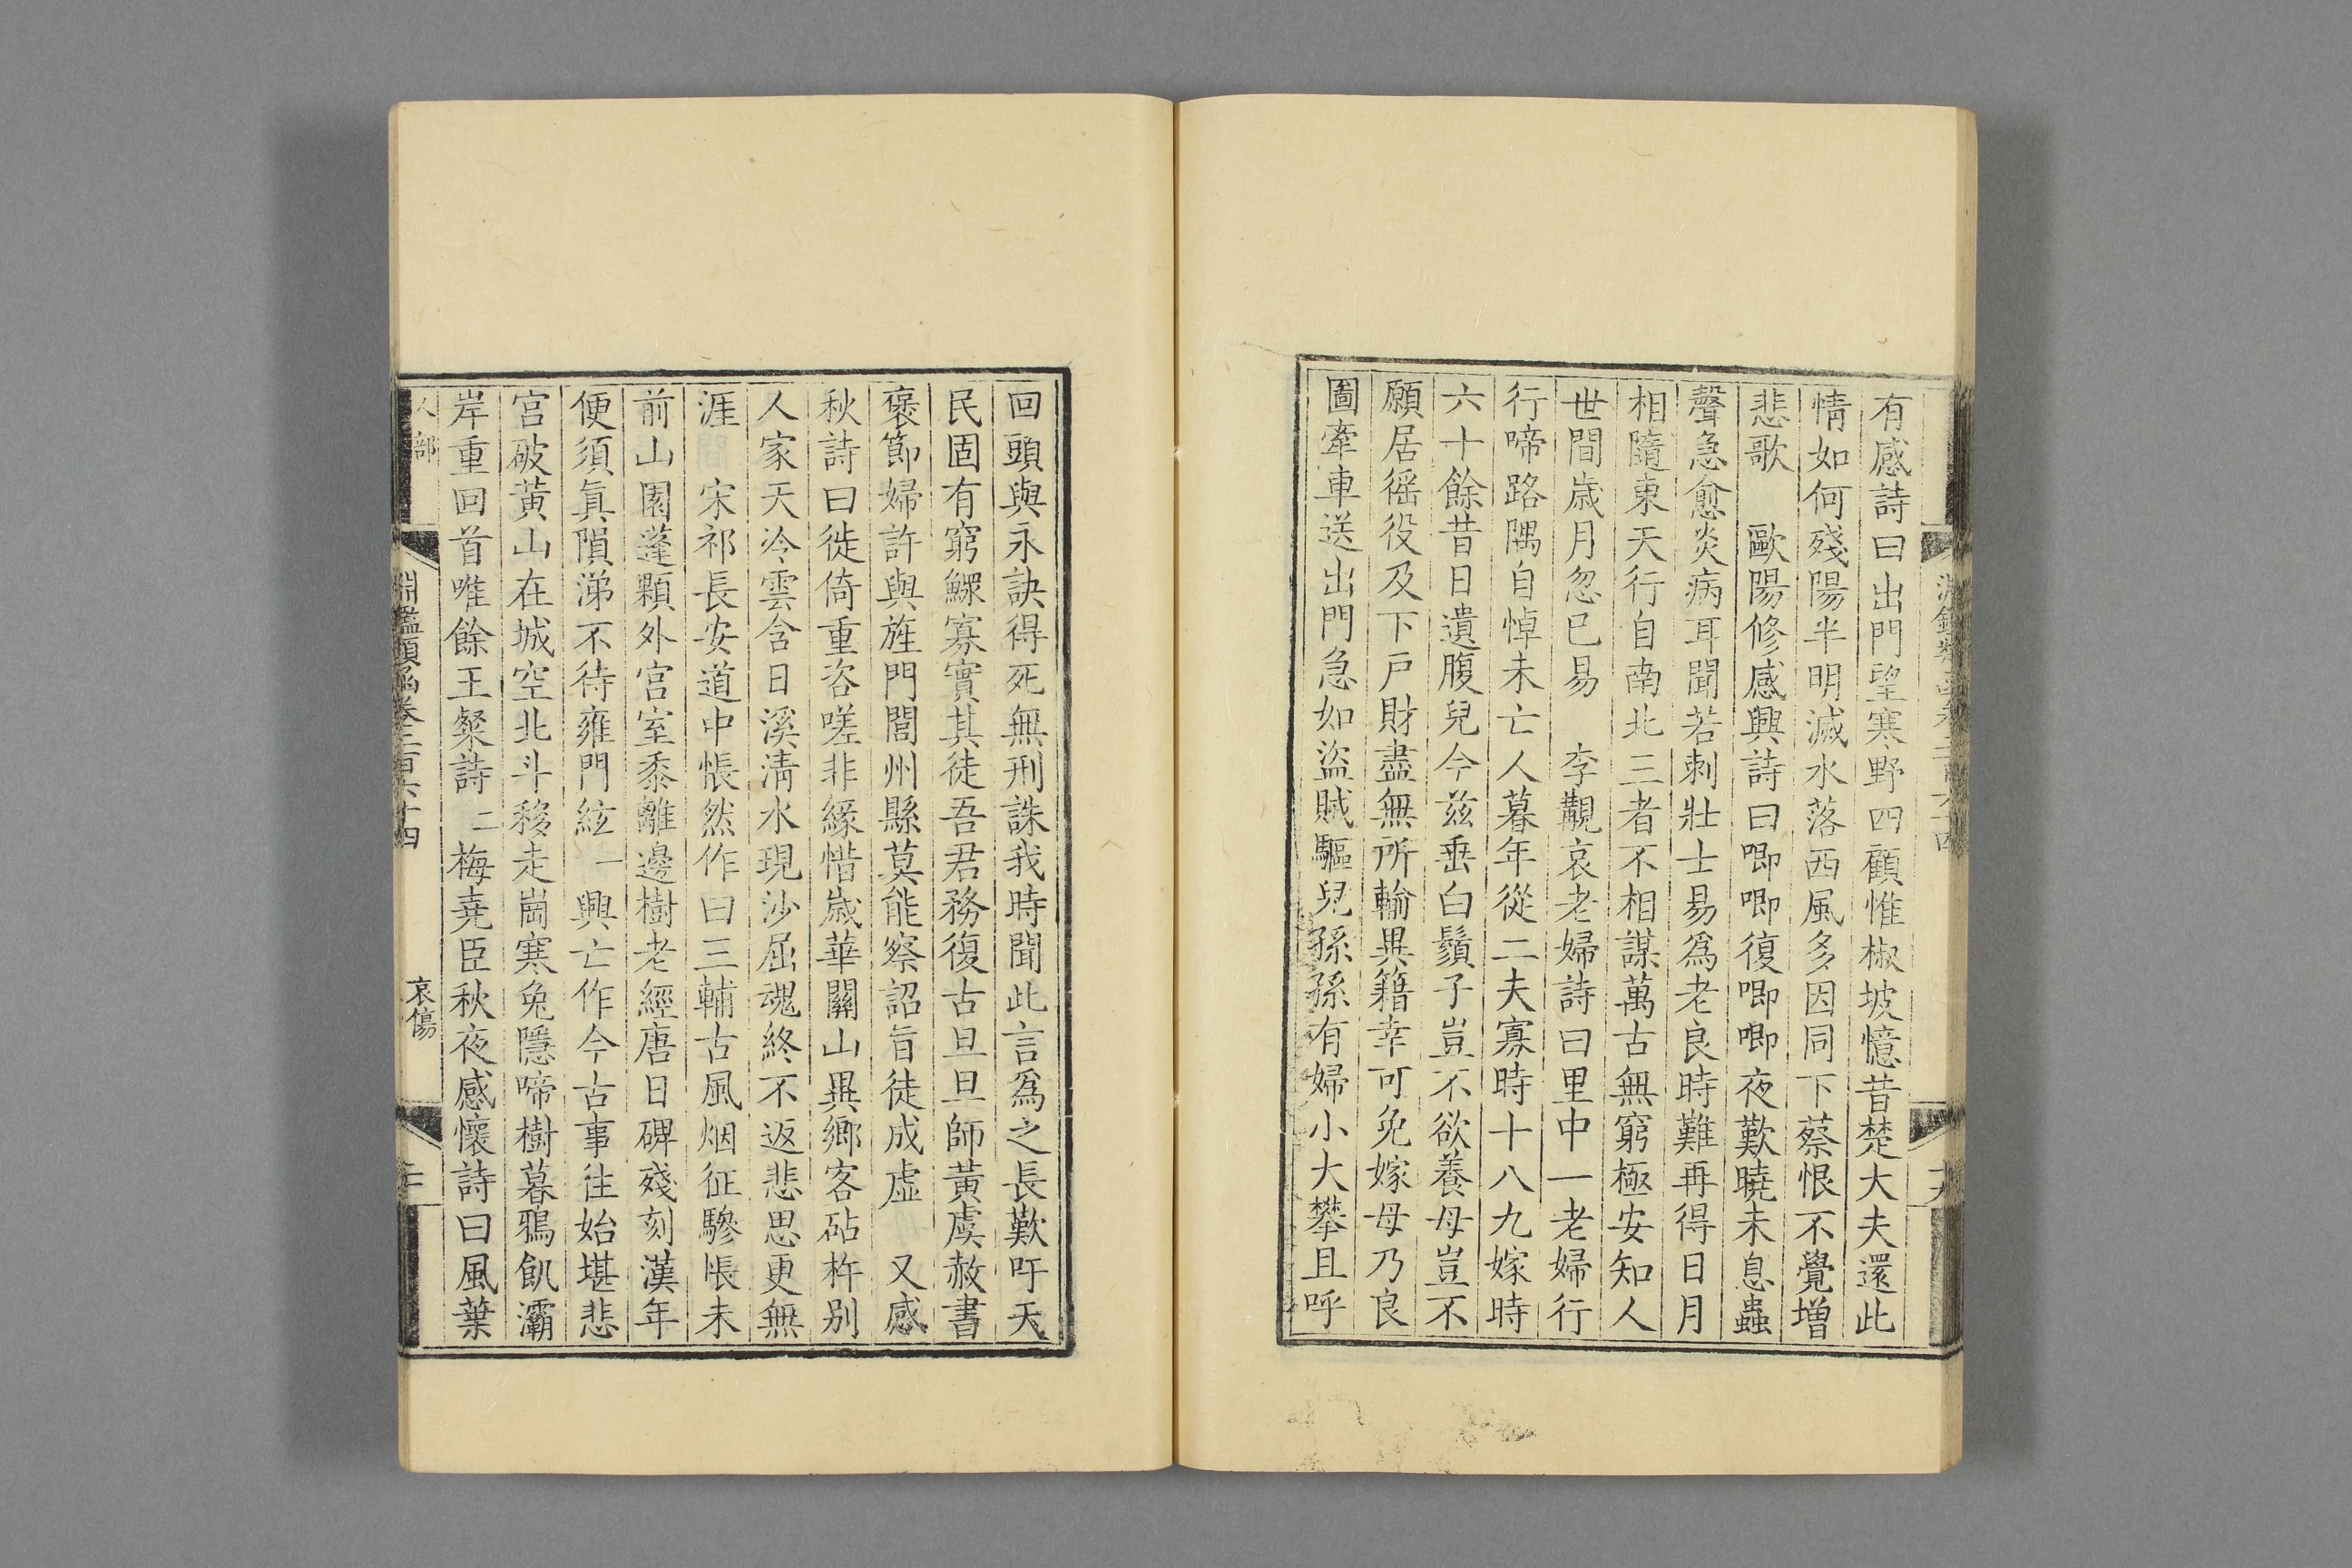 有感詩曰出門望寒野四顧惟椒坡憶昔楚大夫還此
情如何殘陽半明滅水落西風多因同下蔡恨不覺增
悲歌　歐陽修感興詩曰唧唧復唧唧夜歎曉未息蟲
聲急愈炎病耳聞若刺壯士易爲老良時難再得日月
相隨東天行自南北三者不相謀萬古無窮極安知人
世間歲月忽已易　李覯哀老婦詩曰里中一老婦行
行啼路隅自悼未亡人暮年從二夫寡時十八九嫁時
六十餘昔日遺腹兒今兹垂白鬚子豈不欲養母豈不
願居徭役及下戸財盡無所輸異籍幸可免嫁母乃良
圖牽車送出門急如盜賊驅兒孫孫有婦小大攀且呼
回頭與永訣得死無刑誅我時聞此言爲之長歎吁天
民固有窮鰥寡實其徒吾君務復古旦旦師黃虞赦書
褒節婦許與旌門閭州縣莫能察詔旨徒成虛　又感
秋詩曰徙倚重咨嗟非緣惜歲華關山異鄉客砧杵別
人家天冷雲含日溪淸水現沙屈魂終不返悲思更無
涯　宋祁長安道中悵然作曰三輔古風烟征驂悵未
前山園蓬顆外宮室黍離邊樹老經唐日碑殘刻漢年
便須眞隕涕不待雍門絃　一　興亡作今古事往始堪悲
宮破黃山在城空北斗移走崗寒兔隱啼樹暮鴉飢灞
岸重回首唯餘王粲詩　二　梅堯臣秋夜感懷詩曰風葉
人部
淵鑑類函卷二百六十四
哀傷